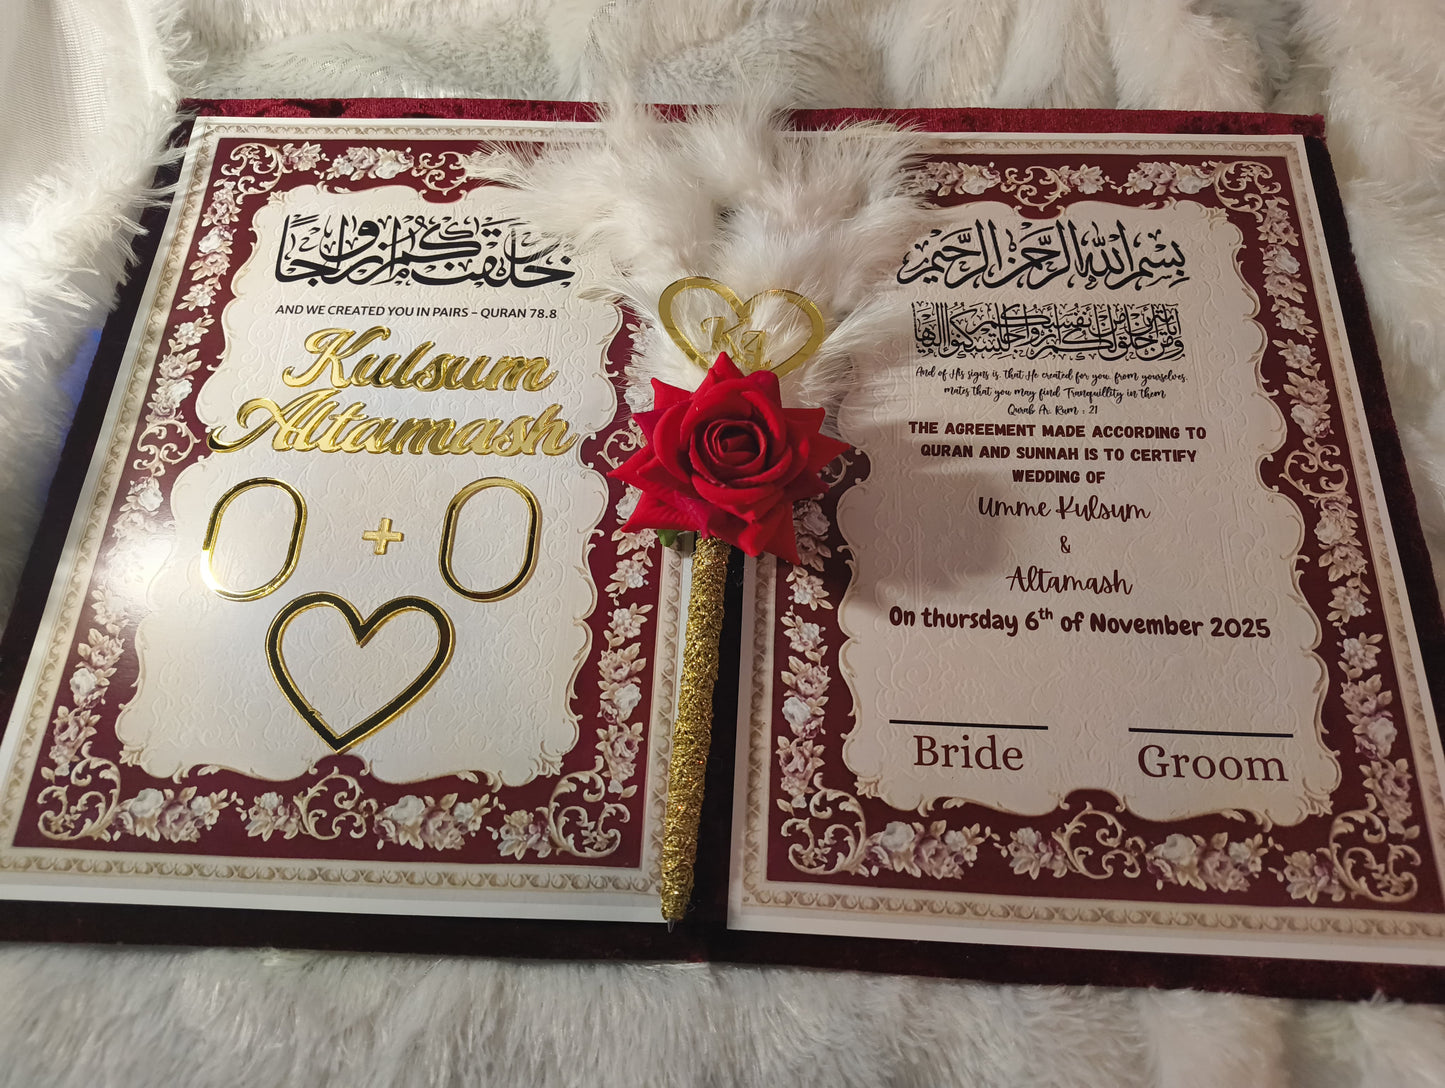 وخلقنكم أزواجا
AND WE CREATED YOU IN PAIRS – QURAN 78.8
Kulsum
Altamash
+
K A
بسم الله الرحمن الرحيم
ومن آياته أن خلق لكم من أنفسكم أزواجا لتسكنوا إليها
And of His signs is that He created for you, from yourselves,
mates that you may find Tranquillity in them
Qurab Ar. Rum : 21
THE AGREEMENT MADE ACCORDING TO
QURAN AND SUNNAH IS TO CERTIFY
WEDDING OF
Umme Kulsum
&
Altamash
On thursday 6th of November 2025
Bride
Groom